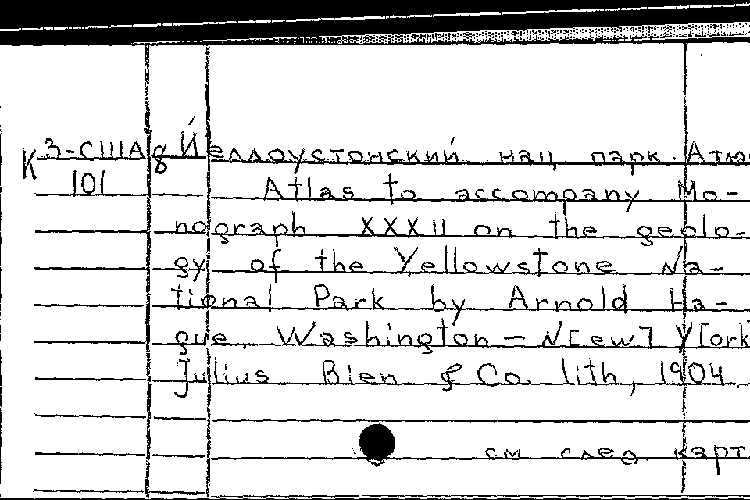 К 3-США 8 Йеллоустонский нац парк. Атла
101 Atlas to accompany Mo-
nograph XXXII on the geolo-
gy of the Yellowstone Na-
tional Park by Arnold Ha-
gue. Washington – N[ew] Y[ork
Julius Bien & Co. lith, 1904
см след. карт